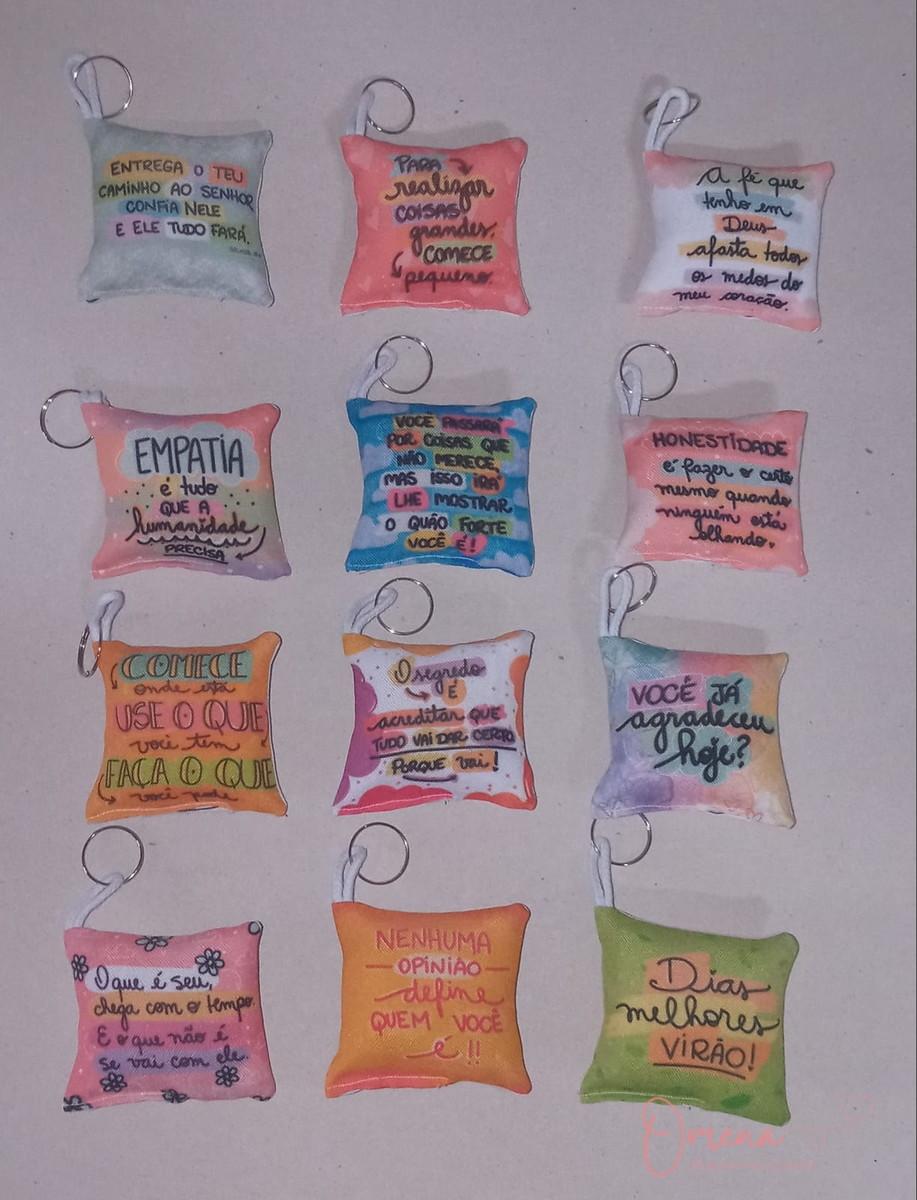 ENTREGA O TEU
CAMINHO AO SENHOR
CONFIA NELE
E ELE TUDO FARÁ.
PARA
realizar
COISAS
grandes,
COMECE
pequeno.
A fé que
tenho em
Deus
afasta todos
os medos do
meu coração.
EMPATIA
é tudo
QUE A
humanidade
PRECISA
VOCÊ PASSARÁ
POR COISAS QUE
NÃO MERECE,
MAS ISSO IRÁ
LHE MOSTRAR
O QUÃO FORTE
VOCÊ É!
HONESTIDADE
é fazer o certo
mesmo quando
ninguém está
olhando.
COMECE
onde está
USE O QUE
você tem
FAÇA O QUE
você pode
O segredo
É
acreditar QUE
TUDO VAI DAR CERTO
PORQUE vai!
VOCÊ JÁ
agradeceu
hoje?
O que é seu,
chega com o tempo.
E o que não é
se vai com ele.
NENHUMA
OPINIÃO
define
QUEM VOCÊ
é!!
Dias
melhores
VIRÃO!